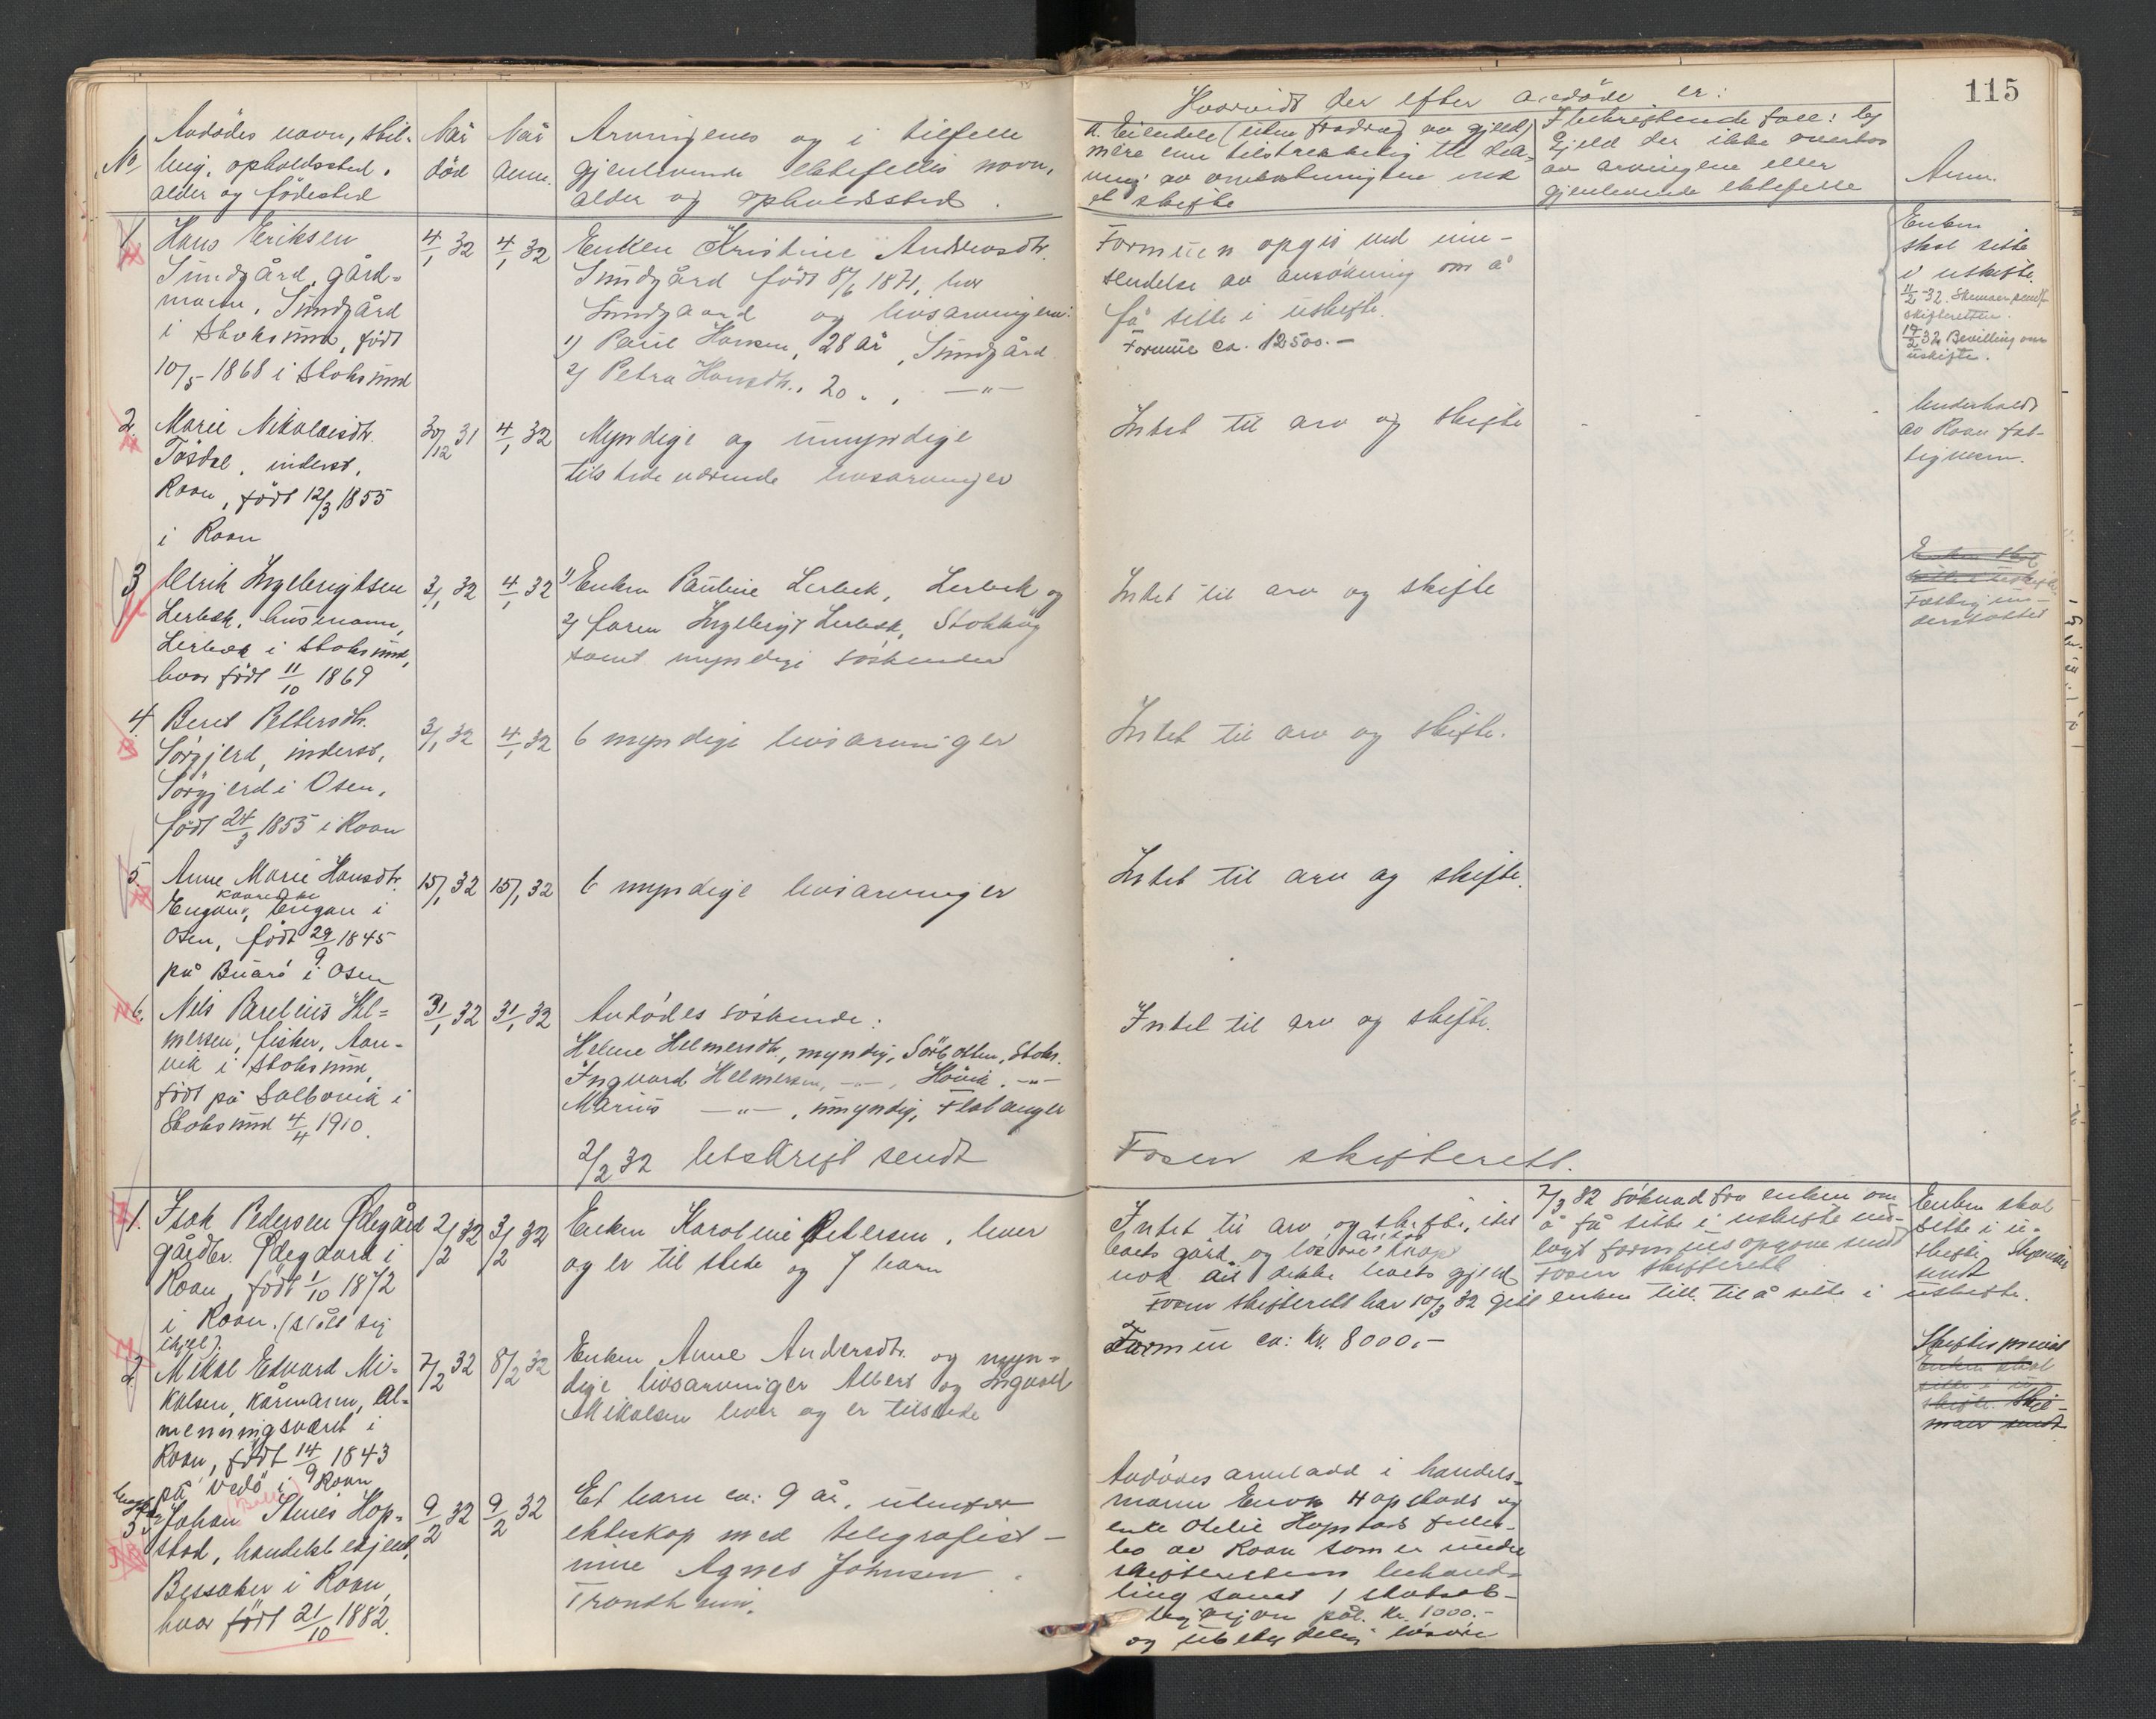 115
Avdødes navn, stil-
ling, opholdssted,
alder og fødested
No
Når
død
Når
anm.
Arvingenes og i tilfelle
gjenlevende ektefelles navn,
alder og opholdssted.
Hvorvidt der efter avdøde er:
a. Eiendele (uten fradrag av gjeld)
mere enn tilstrekkelig til dek-
ning av omkostningene ved
et skifte
I bekreftende fall: b)
Gjeld der ikke overtas
av arvingene eller
gjenlevende ektefelle
Anm.
1.
Hans Eriksen
Sundgård, gård-
mann, Sundgård
i Stoksund, født
10/5 1868 i Stoksund
4/1 32
4/1 32
Enken Kristine Andreasdtr.
Sundgård født 8/6 1871, bor
Sundgaard og livsarvingene:
1) Paul Hansen, 28 år, Sundgård
2) Petra Hansdtr., 20 " , —"—
Formuen opgis ved inn-
sendelse av ansøkning om å
få sitte i uskifte.
Formue ca. 12500.-
Enken
skal sitte
i uskifte
11/2 -32. Skemaer sendt
skifteretten.
17/2 32 Bevilling om
uskifte.
2.
Marie Nikolaisdtr.
Tøsdal, inderst,
Roan, født 12/3 1855
i Roan
30/12 31
4/1 32
Myndige og umyndige
tilstedeværende livsarvinger
Intet til arv og skifte
Underholdt
av Roan fat-
tigvesen.
3
Ulrik Ingebrigtsen
Lerbek, husmann,
Lerbek i Stoksund,
hvor født 11/10 1869
3/1 32
4/1 32
1) Enken Pauline Lerbek, Lerbek og
2) faren Ingebrigt Lerbek, Stokkøy
samt myndige søskende
Intet til arv og skifte
Enken skal
sitte i uskifte
Fattigun-
derstøttet
4.
Beret Pettersdtr.
Sørgjerd, inderst,
Sørgjerd i Osen,
født 24/3 1855 i Roan
3/1 32
4/1 32
6 myndige livsarvinger
Intet til arv og skifte.
5.
Anne Marie Hansdtr.
Engan, Engan i
Osen, født 29/9 1845
på Buarø i Osen
15/1 32
15/1 32
6 myndige livsarvinger
Intet til arv og skifte.
6.
Nils Parelius Hel-
mersen, fisker, Aun-
vik i Stoksund,
født på Salbovik i
Stoksund 4/4 1910.
31/1 32
31/1 32
Avdødes søskende:
Helene Helmersdtr., myndig, Sørbotten, Stoks.
Ingvard Helmersen, —"—, Høvik. —"—
Marius —"—, umyndig, Flatanger
Intet til arv og skifte.
2/2 32 Utskrift sendt
Fosen skifterett.
1.
Isak Pedersen Ødegård
gårdbr. Ødegaard i
Roan, født 1/10 1872
i Roan. (slått sig
ihjel).
2/2 32
3/2 32
Enken Karoline Pedersen, lever
og er til stede og 7 barn
Intet til arv og skifte, idet
boets gård og løsøre knapt
nok vil dekke boets gjeld
7/3 32 søknad fra enken om
å få sitte i uskifte ved-
lagt formuesopgave sendt
Fosen skifterett
Fosen skifterett har 10/3 32 gitt enken till. til å sitte i uskifte.
Enken skal
sitte i u-
skifte. Skjemaer
sendt
2.
Mikal Edvard Mi-
kalsen, kårmann, Al-
menningsværet i
Roan, født 14/9 1843
på Vedø i Roan
7/2 32
8/2 32
Enken Anne Andersdtr. og myn-
dige livsarvinger Albert og Ingvald
Mikalsen lever og er tilstede
Formue ca: Kr. 8000.-
Skiftes privat
Enken skal
sitte i u-
skifte. Skje-
maer sendt
3.
Johan Stenes Hop-
stad, handelsbetjent,
Bessaker i Roan,
hvor født 21/10 1882.
9/2 32
9/2 32
Et barn ca: 9 år, utenfor
ekteskap med telegrafist-
inne Agnes Johnsen
Trondheim.
Avdødes arvelodd i handels-
mann Enok Hopstads og
enke Otelie Hopstads felles-
bo av Roan som er under
skifterettens behand-
ling samt 1 statsob-
ligasjon pål. kr. 1000.-
og ubetydelig løsøre